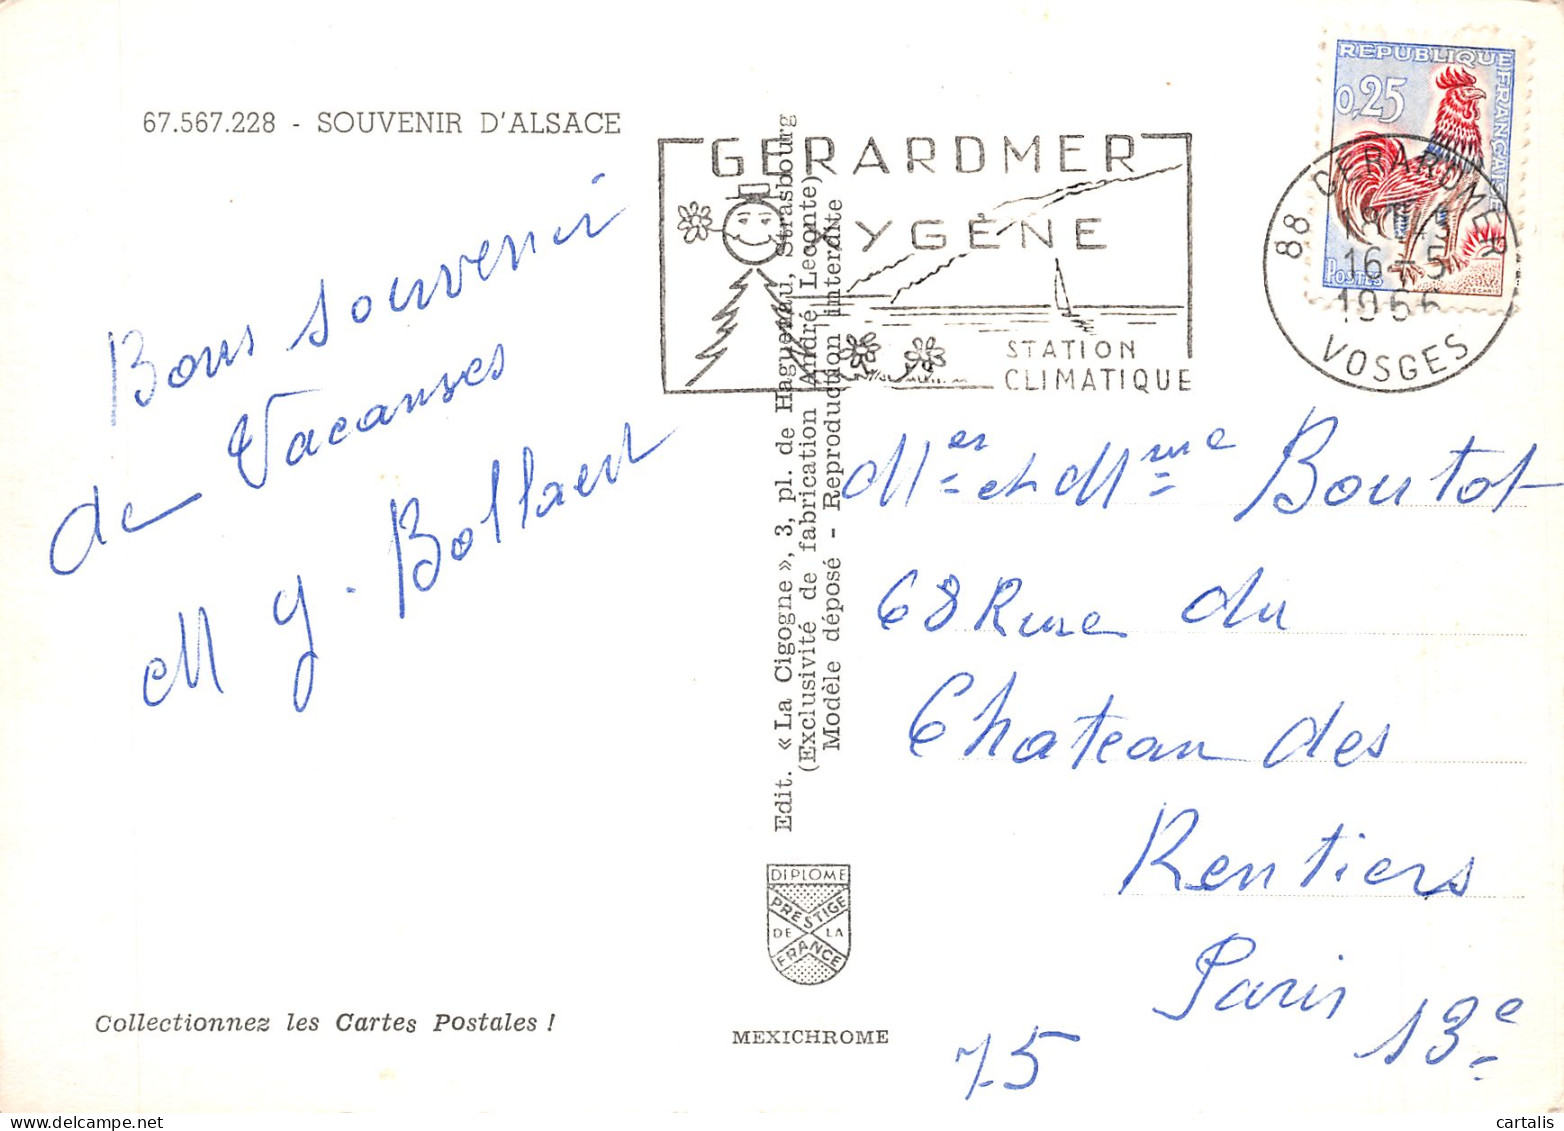 67.567.228 - SOUVENIR D'ALSACE
Bons souvenir
de Vacanses
M G. Bollaert
Collectionnez les Cartes Postales !
Edit. « La Cigogne », 3, pl. de Haguenau, Strasbourg
(Exclusivité de fabrication André Leconte)
Modèle déposé - Reproduction interdite
DIPLOME
PRESTIGE
DE LA
FRANCE
MEXICHROME
GERARDMER
OXYGÈNE
STATION
CLIMATIQUE
REPUBLIQUE FRANÇAISE
0,25
POSTES
88 GERARDMER
16 - 5
1966
VOSGES
Mer et Mme Boutot
68 Rue du
Chateau des
Rentiers
Paris 13e
75
cartalis